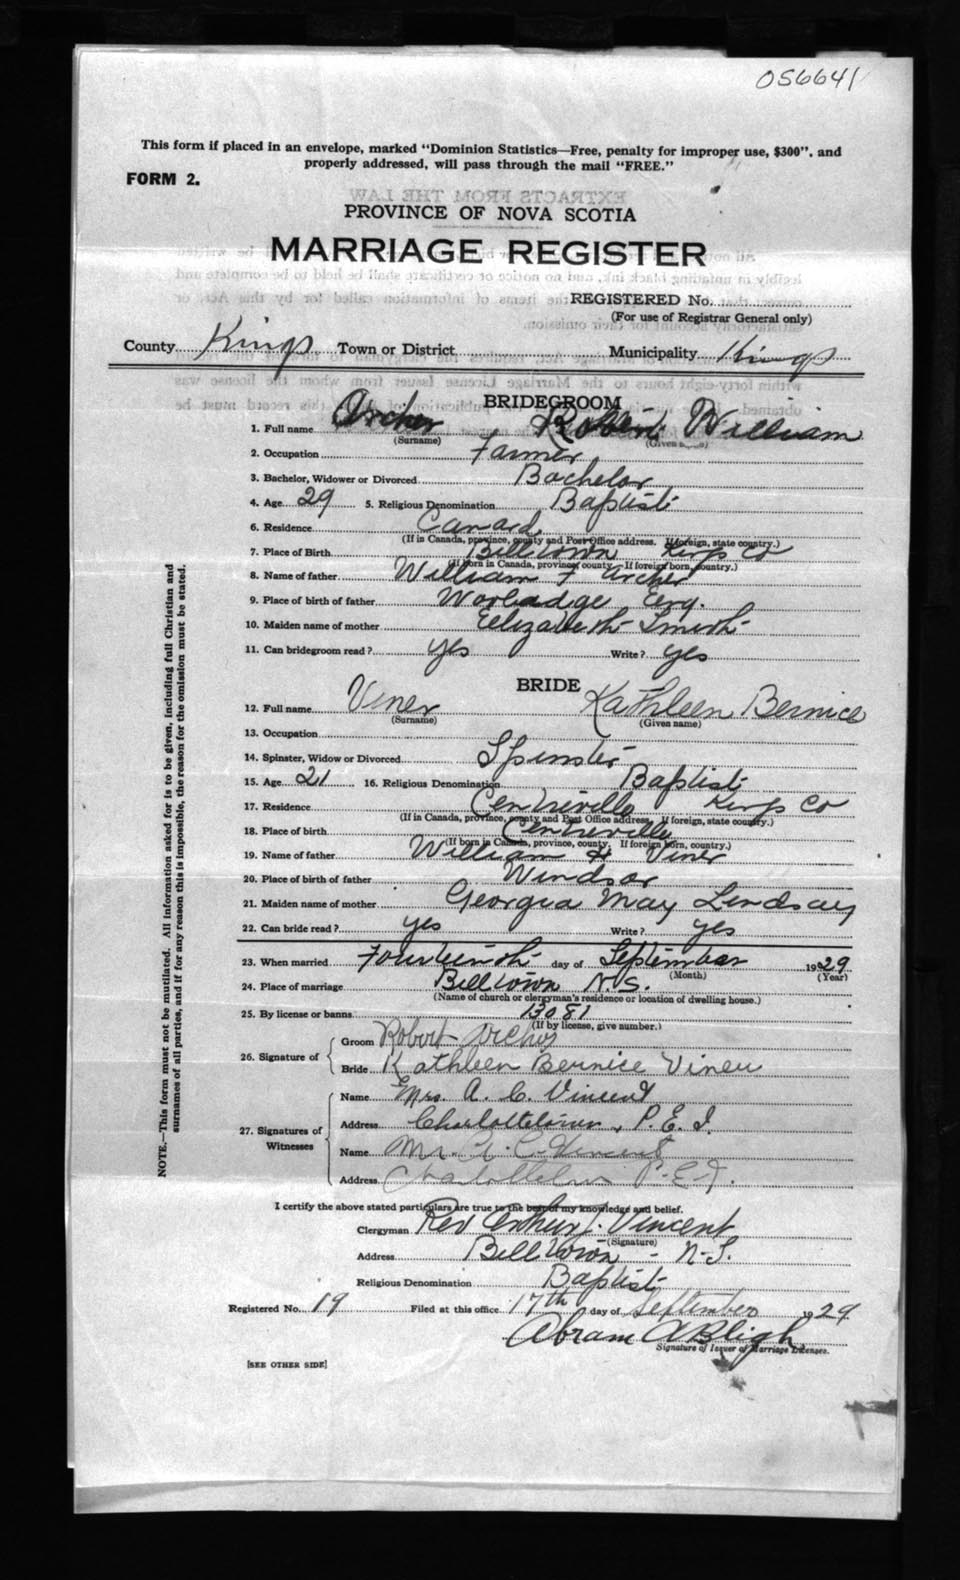 056641
This form if placed in an envelope, marked "Dominion Statistics—Free, penalty for improper use, $300", and
properly addressed, will pass through the mail "FREE."
FORM 2.
EXTRACTS FROM THE LAW
PROVINCE OF NOVA SCOTIA
MARRIAGE REGISTER
REGISTERED No.
(For use of Registrar General only)
County Kings Town or District Municipality Kings
BRIDEGROOM
1. Full name Archer Robert William
(Surname) (Given name)
2. Occupation Farmer
3. Bachelor, Widower or Divorced Bachelor
4. Age 29 5. Religious Denomination Baptist
6. Residence Canard
(If in Canada, province, county and Post Office address. If foreign, state country.)
7. Place of Birth Billtown Kings Co
(If born in Canada, province, county. If foreign born, country.)
8. Name of father William F Archer
9. Place of birth of father Worladge Eng.
10. Maiden name of mother Elizabeth Smith
11. Can bridegroom read? yes Write? yes
BRIDE
12. Full name Viner Kathleen Bernice
(Surname) (Given name)
13. Occupation
14. Spinster, Widow or Divorced Spinster
15. Age 21 16. Religious Denomination Baptist
17. Residence Centreville Kings Co
(If in Canada, province, county and Post Office address. If foreign, state country.)
18. Place of birth Centreville
(If born in Canada, province, county. If foreign born, country.)
19. Name of father William H Viner
20. Place of birth of father Windsor
21. Maiden name of mother Georgia May Lindsay
22. Can bride read? yes Write? yes
23. When married Fourteenth day of September 1929
(Month) (Year)
24. Place of marriage Billtown N.S.
(Name of church or clergyman's residence or location of dwelling house.)
25. By license or banns 13081
(If by license, give number.)
26. Signature of
Groom Robert Archer
Bride Kathleen Bernice Viner
27. Signatures of Witnesses
Name Mrs A. C. Vincent
Address Charlottetown, P.E.I.
Name Mr. A. C. Vincent
Address Charlottetown P.E.I.
I certify the above stated particulars are true to the best of my knowledge and belief.
Clergyman Rev Arthur J. Vincent
(Signature)
Address Billtown - N.S.
Religious Denomination Baptist
Registered No. 19 Filed at this office 17th day of September 1929
Abram A Bligh
Signature of Issuer of Marriage Licenses.
[SEE OTHER SIDE]
NOTE.—This form must not be mutilated. All information asked for is to be given, including full Christian and
surnames of all parties, and if for any reason this is impossible, the reason for the omission must be stated.